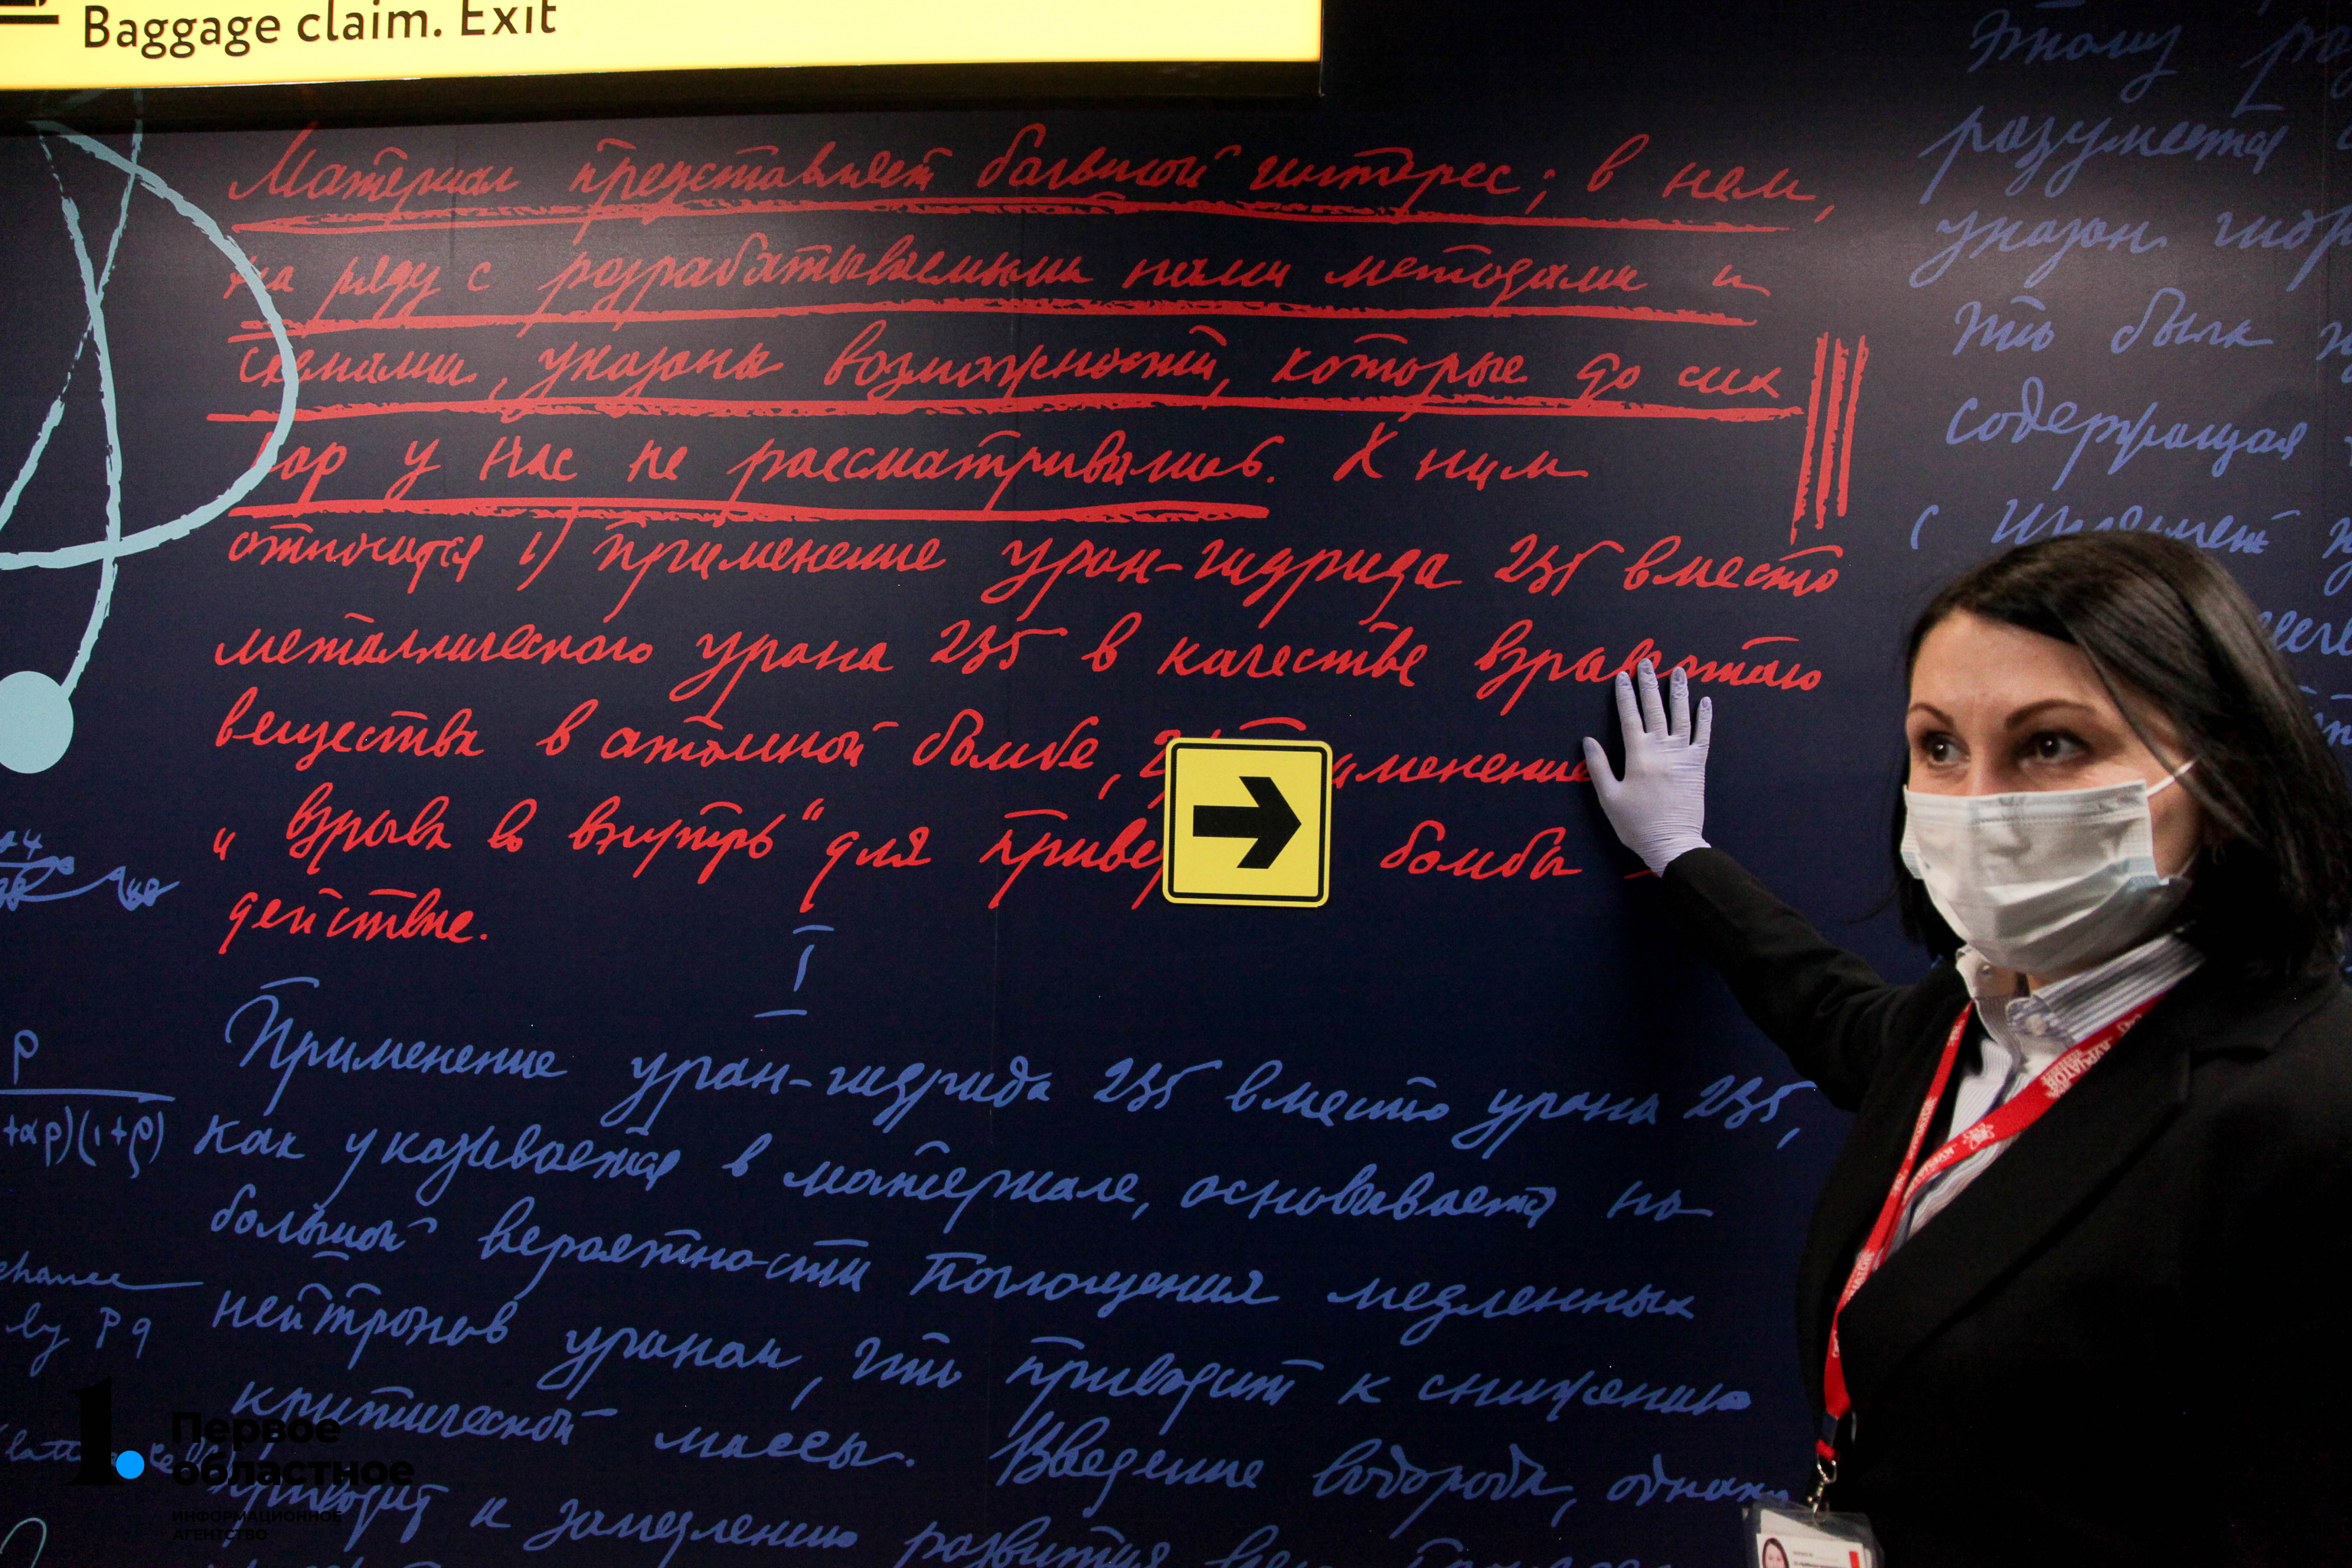 Baggage claim. Exit
Материал представляет большой интерес; в нем,
на ряду с разрабатываемыми нами методами и
схемами, указаны возможности, которые до сих
пор у нас не рассматривались. К ним
относится 1) применение уран-гидрида 235 вместо
металлического урана 235 в качестве
вещества в атомной бомбе, 2)
„взрыв во внутрь" для бомбы в
действие.
I
Применение уран-гидрида 235 вместо урана 235,
как указывается в материале, основывается на
большой вероятности поглощения медленных
нейтронов ураном, что приводит к снижению
критической массы. Введение водорода, однако,
приводит к замедлению развития
Этому
разумеется
указан
что были
содержащая
с
ρ
+αρ)(1+ρ)
chance
by Pq
1.
Первое
областное
ИНФОРМАЦИОННОЕ
АГЕНТСТВО